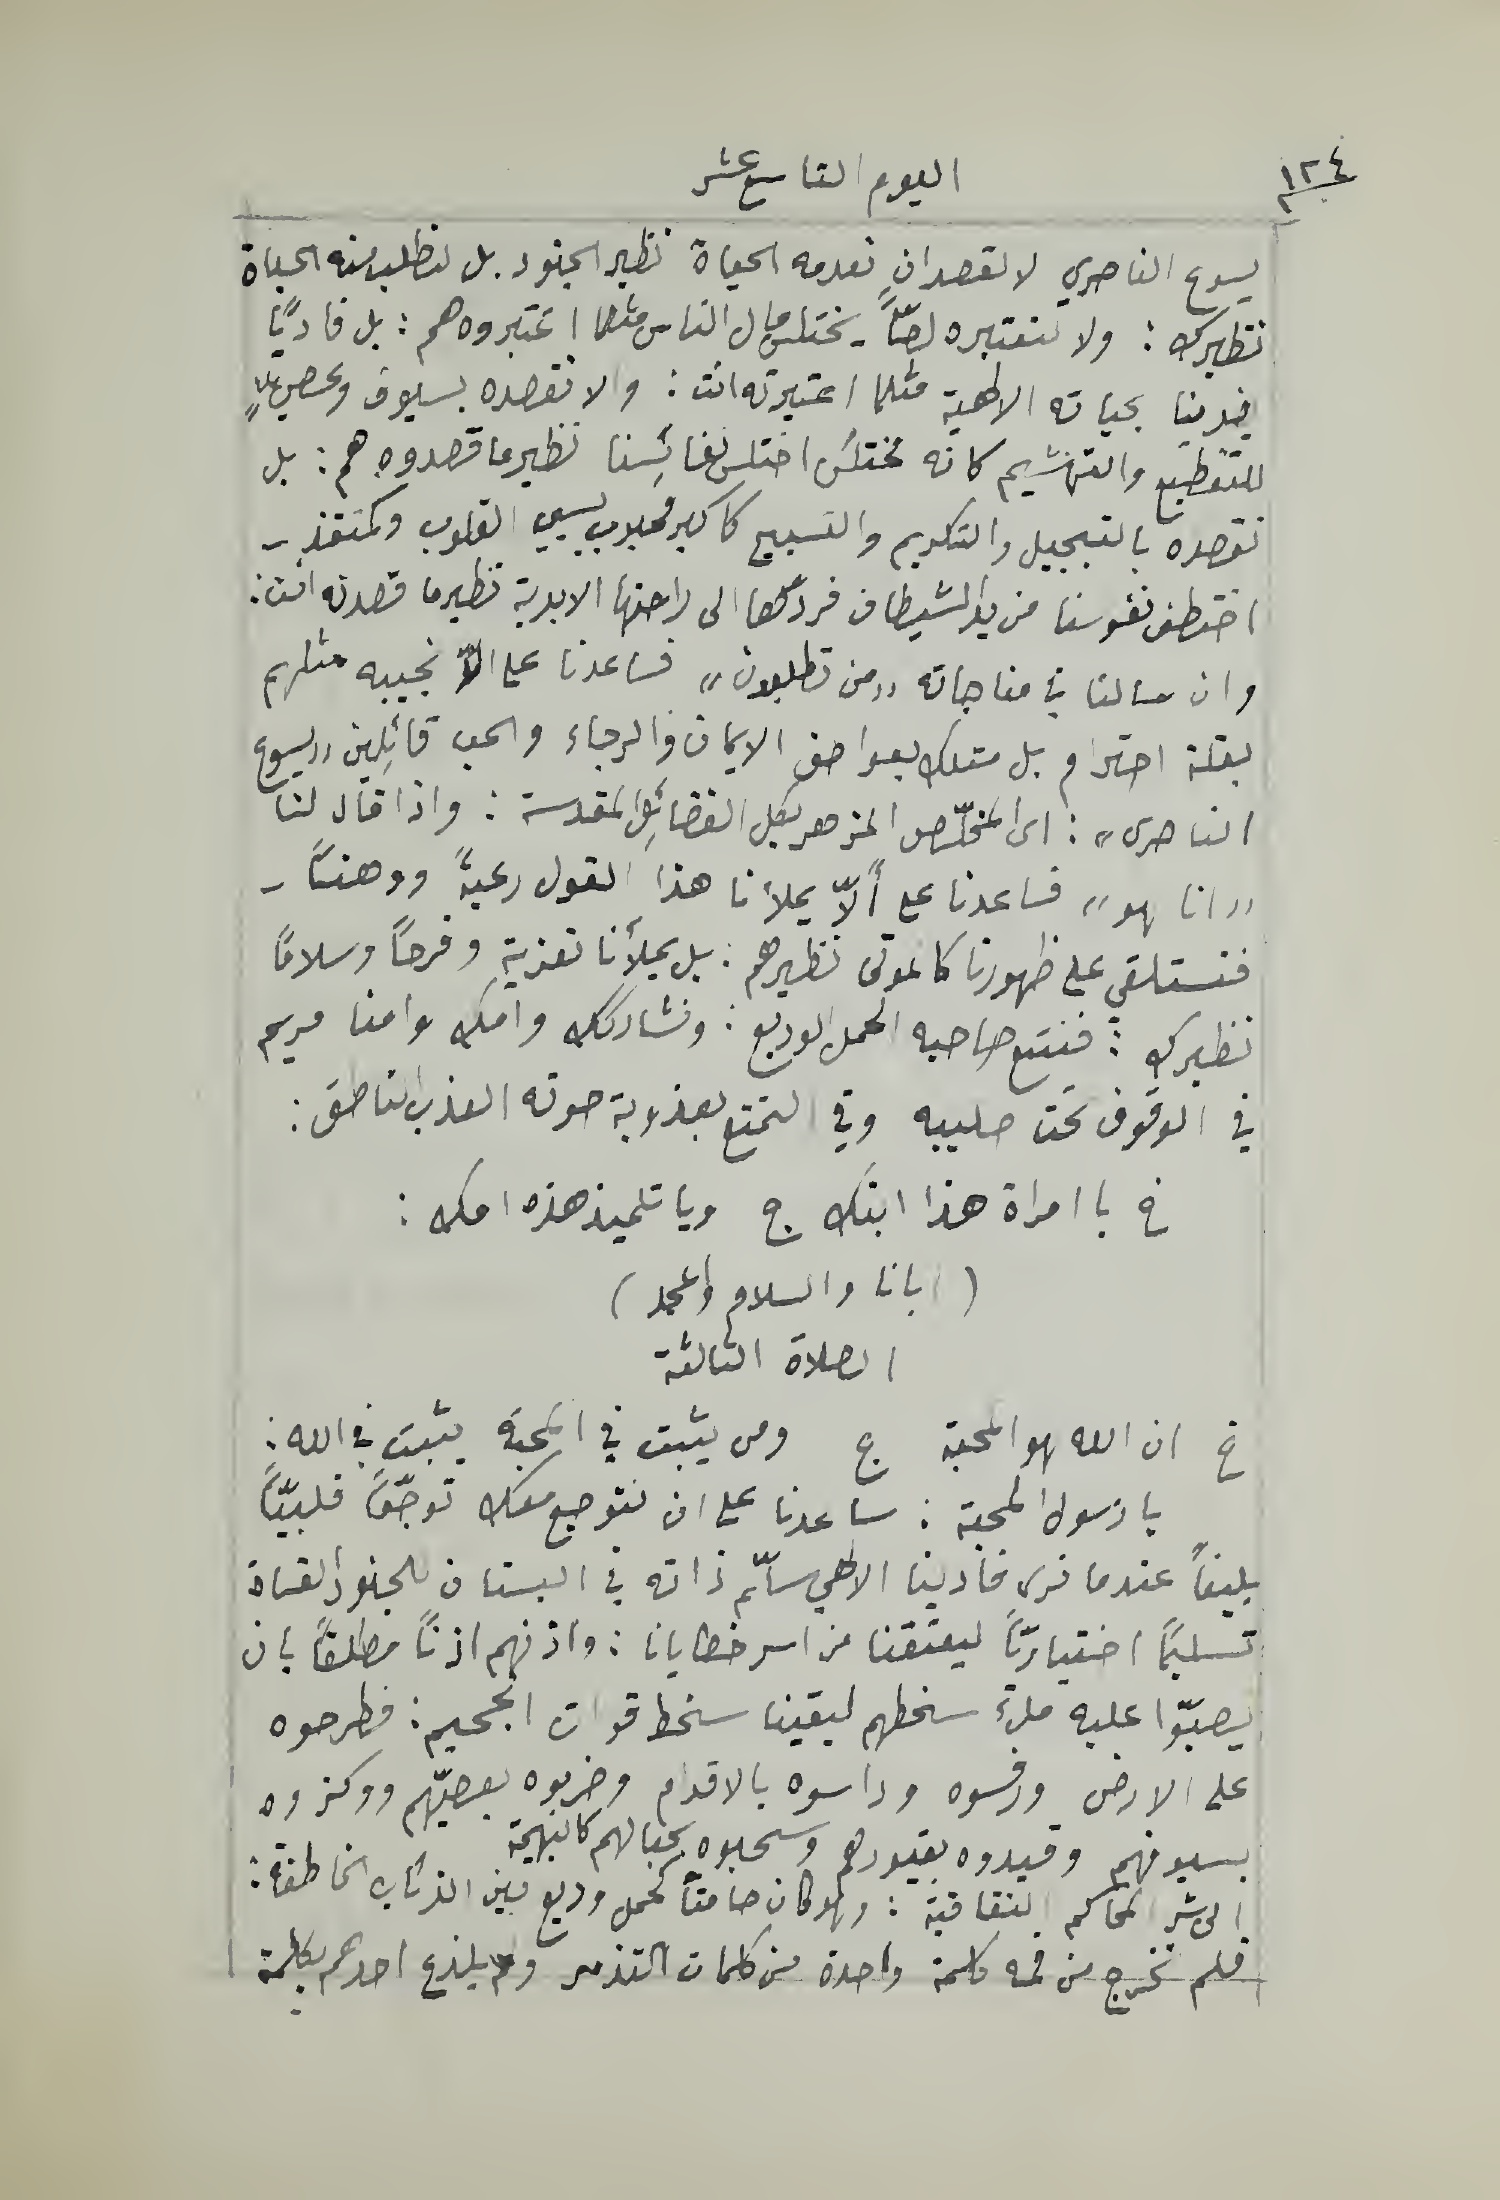 ١٢٤
اليوم التاسع عشر
يسوع الناصري لا لقصد ان نعدمه الحياة نظير الجنود. بل لنطلب منه الحياة
نظيرك : ولا لنعتبره لصّاً يختلس مال الناس مثلما اعتبروه هم : بل فاديًا
يفدينا بحياته الالهية مثلما اعتبرته انت : ولا نقصده بسيوف وعصي
للتقطيع والتهشيم كانه مختلس اختلس نفائسنا نظير ما قصدوه هم : بل
نقصده بالتبجيل والتكريم والتسبيح كاكبر محبوب يسبي القلوب وكمنقذ
اختطف نفوسنا من يد الشيطان فردّها الى راحتها الابدية نظير ما قصدته انت :
وان سالنا في مناجاته «من تطلبون» فساعدنا على الّا نجيبه مثلهم
بقلة احترام بل مثلك بعواطف الايمان والرجاء والحب قائلين «يسوع
الناصري» : اي المخلّص المزهر بكل الفضائل المقدسة : واذا قال لنا
«انا هو» فساعدنا على ألّا يملأنا هذا القول رعبةً ووهنًا
فنستلقي على ظهورنا كالموتى نظيرهم : بل يملأنا تعزيةً وفرحًا وسلامًا
نظيرك : فنتبع صاحبه الحمل الوديع : ونشاركك وامك وامنا مريم
في الوقوف تحت صليبه وفي التمتع بعذوبة صوته العذب الناطق :
خ يا امراة هذا ابنك ج ويا تلميذ هذه امك :
( ابانا والسلام والمجد )
الصلاة الثالثة
خ ان الله هو المحبة ج ومن يثبت في المحبة يثبت في الله :
يا رسول المحبة : ساعدنا على ان نتوجع معك توجّعًا قلبيًّا
بليغاً عندما نرى فادينا الالهي سلّم ذاته في البستان للجنود القساة
تسليمًا اختياريًّا ليعتقنا من اسر خطايانا : واذنهم اذنًا مطلقًا بان
يصبّوا عليه ملء سخطهم ليقينا سخط قوات الجحيم : فطرحوه
على الارض ورفسوه وداسوه بالاقدام وضربوه بعصيّهم ووكزوه
بسيوفهم وقيدوه بقيودهم وسحبوه بحبالهم كالبهيمة
الى شر المحاكم النفاقية : وهو كان صامتًا كحمل وديع بين الذئاب الخاطفة :
فلم تخرج من فمه كلمة واحدة من كلمات التذمر ولم يلذع احدهم بكلمة